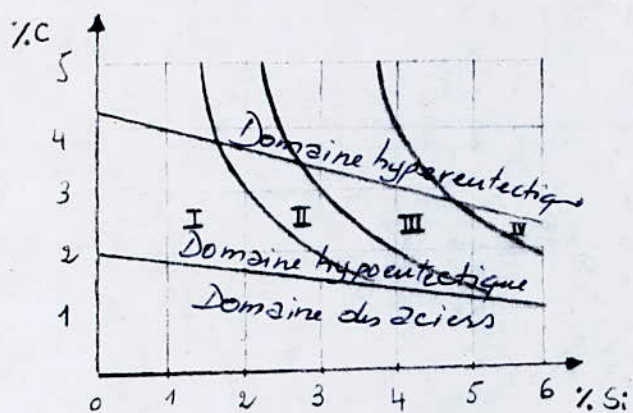 %C
5
4
3
2
1
Domaine hypereutectique
I II III IV
Domaine hypoeutectique
Domaine des aciers
0 1 2 3 4 5 6 % Si